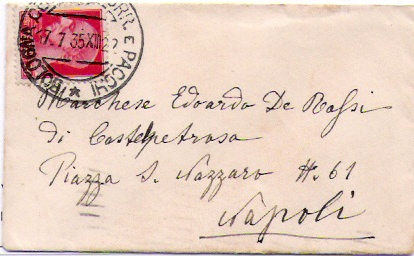 BOLOGNA CORR. E PACCHI
17.7.35 XIII 22
Marchese Edoardo De Rossi
di Castelpetroso
Piazza S. Nazzaro N. 61
Napoli